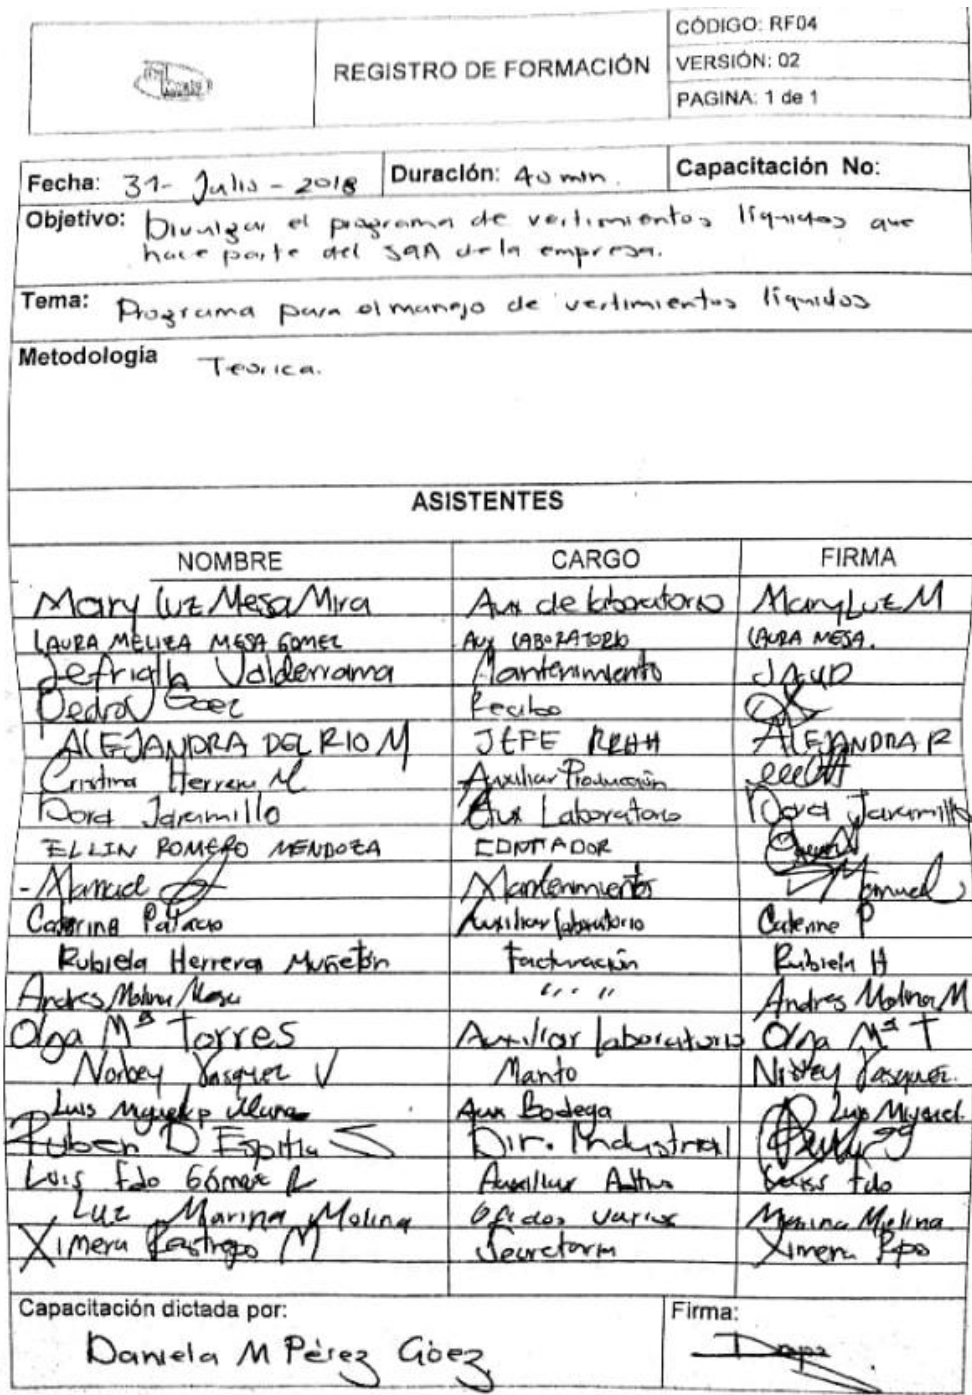 REGISTRO DE FORMACIÓN
CÓDIGO: RF04
VERSIÓN: 02
PAGINA: 1 de 1
Fecha: 31- Julio - 2018 Duración: 40 min. Capacitación No:
Objetivo: Divulgar el programa de vertimientos líquidos que
hace parte del SGA de la empresa.
Tema: Programa para el manejo de vertimientos líquidos
Metodología Teorica.
ASISTENTES
NOMBRE CARGO FIRMA
Mary Luz Mesa Mira Aux de laboratorio Mary Luz M
LAURA MELIZA MESA GOMEZ AUX LABORATORIO LAURA MESA.
Valderrama Mantenimiento
Pedro Goez Recibo
ALEJANDRA DEL RIO M JEFE RRHH ALEJANDRA R
Cristina Herrera M Auxiliar Producción
Dora Jaramillo Aux Laboratorio Dora Jaramillo
ELLIN ROMERO MENDOZA CONTADOR
- Manuel Mantenimiento Manuel
Caterine Palacio Auxiliar laboratorio Caterine P
Rubiela Herrera Muñetón Facturación Rubiela H
Andres Molina Mesa " " Andres Molina M
Olga Mª Torres Auxiliar laboratorio Olga Mª T
Norbey Vasquez V Manto Norbey Vasquez.
Luis Aux Bodega Luis Miguel.
Ruben D Espitia S Dir. Industrial
Luis Fdo Gómez R Auxiliar Luis Fdo
Luz Marina Molina Oficios varios Marina Molina.
Ximena Restrepo M Secretaria Ximena Rpo
Capacitación dictada por: Firma:
Daniela M Pérez Góez